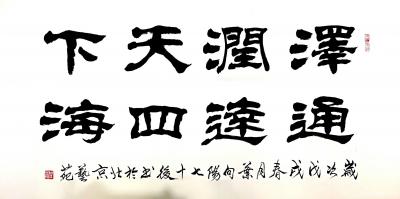 澤潤天下
通達四海
歲次戊戌春月葉向陽七十後书於北京藝苑